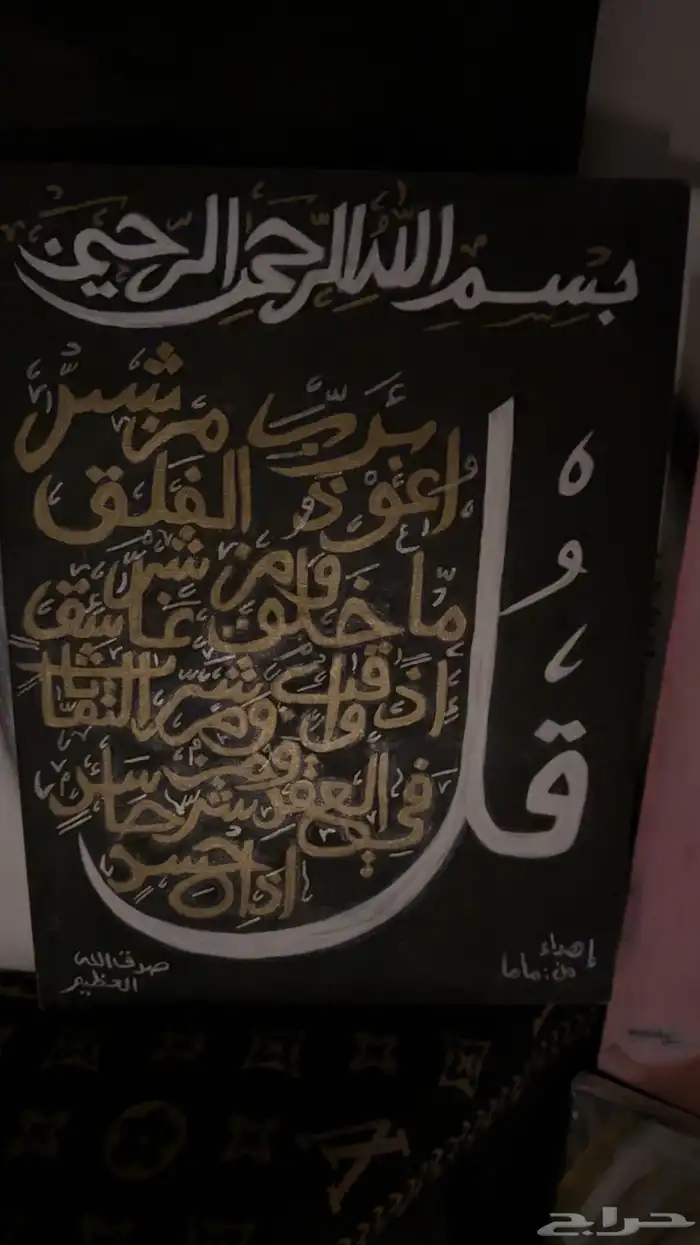 بِسْمِ اللهِ الرَّحْمنِ الرَّحِيمِ
قُلْ
أَعُوذُ بِرَبِّ الْفَلَقِ مِنْ شَرِّ
مَا خَلَقَ وَمِنْ شَرِّ غَاسِقٍ
إِذَا وَقَبَ وَمِنْ شَرِّ النَّفَّاثَاتِ
فِي الْعُقَدِ وَمِنْ شَرِّ حَاسِدٍ
إِذَا حَسَدَ
إهداء
من: ماما
صدق الله
العظيم
حراج